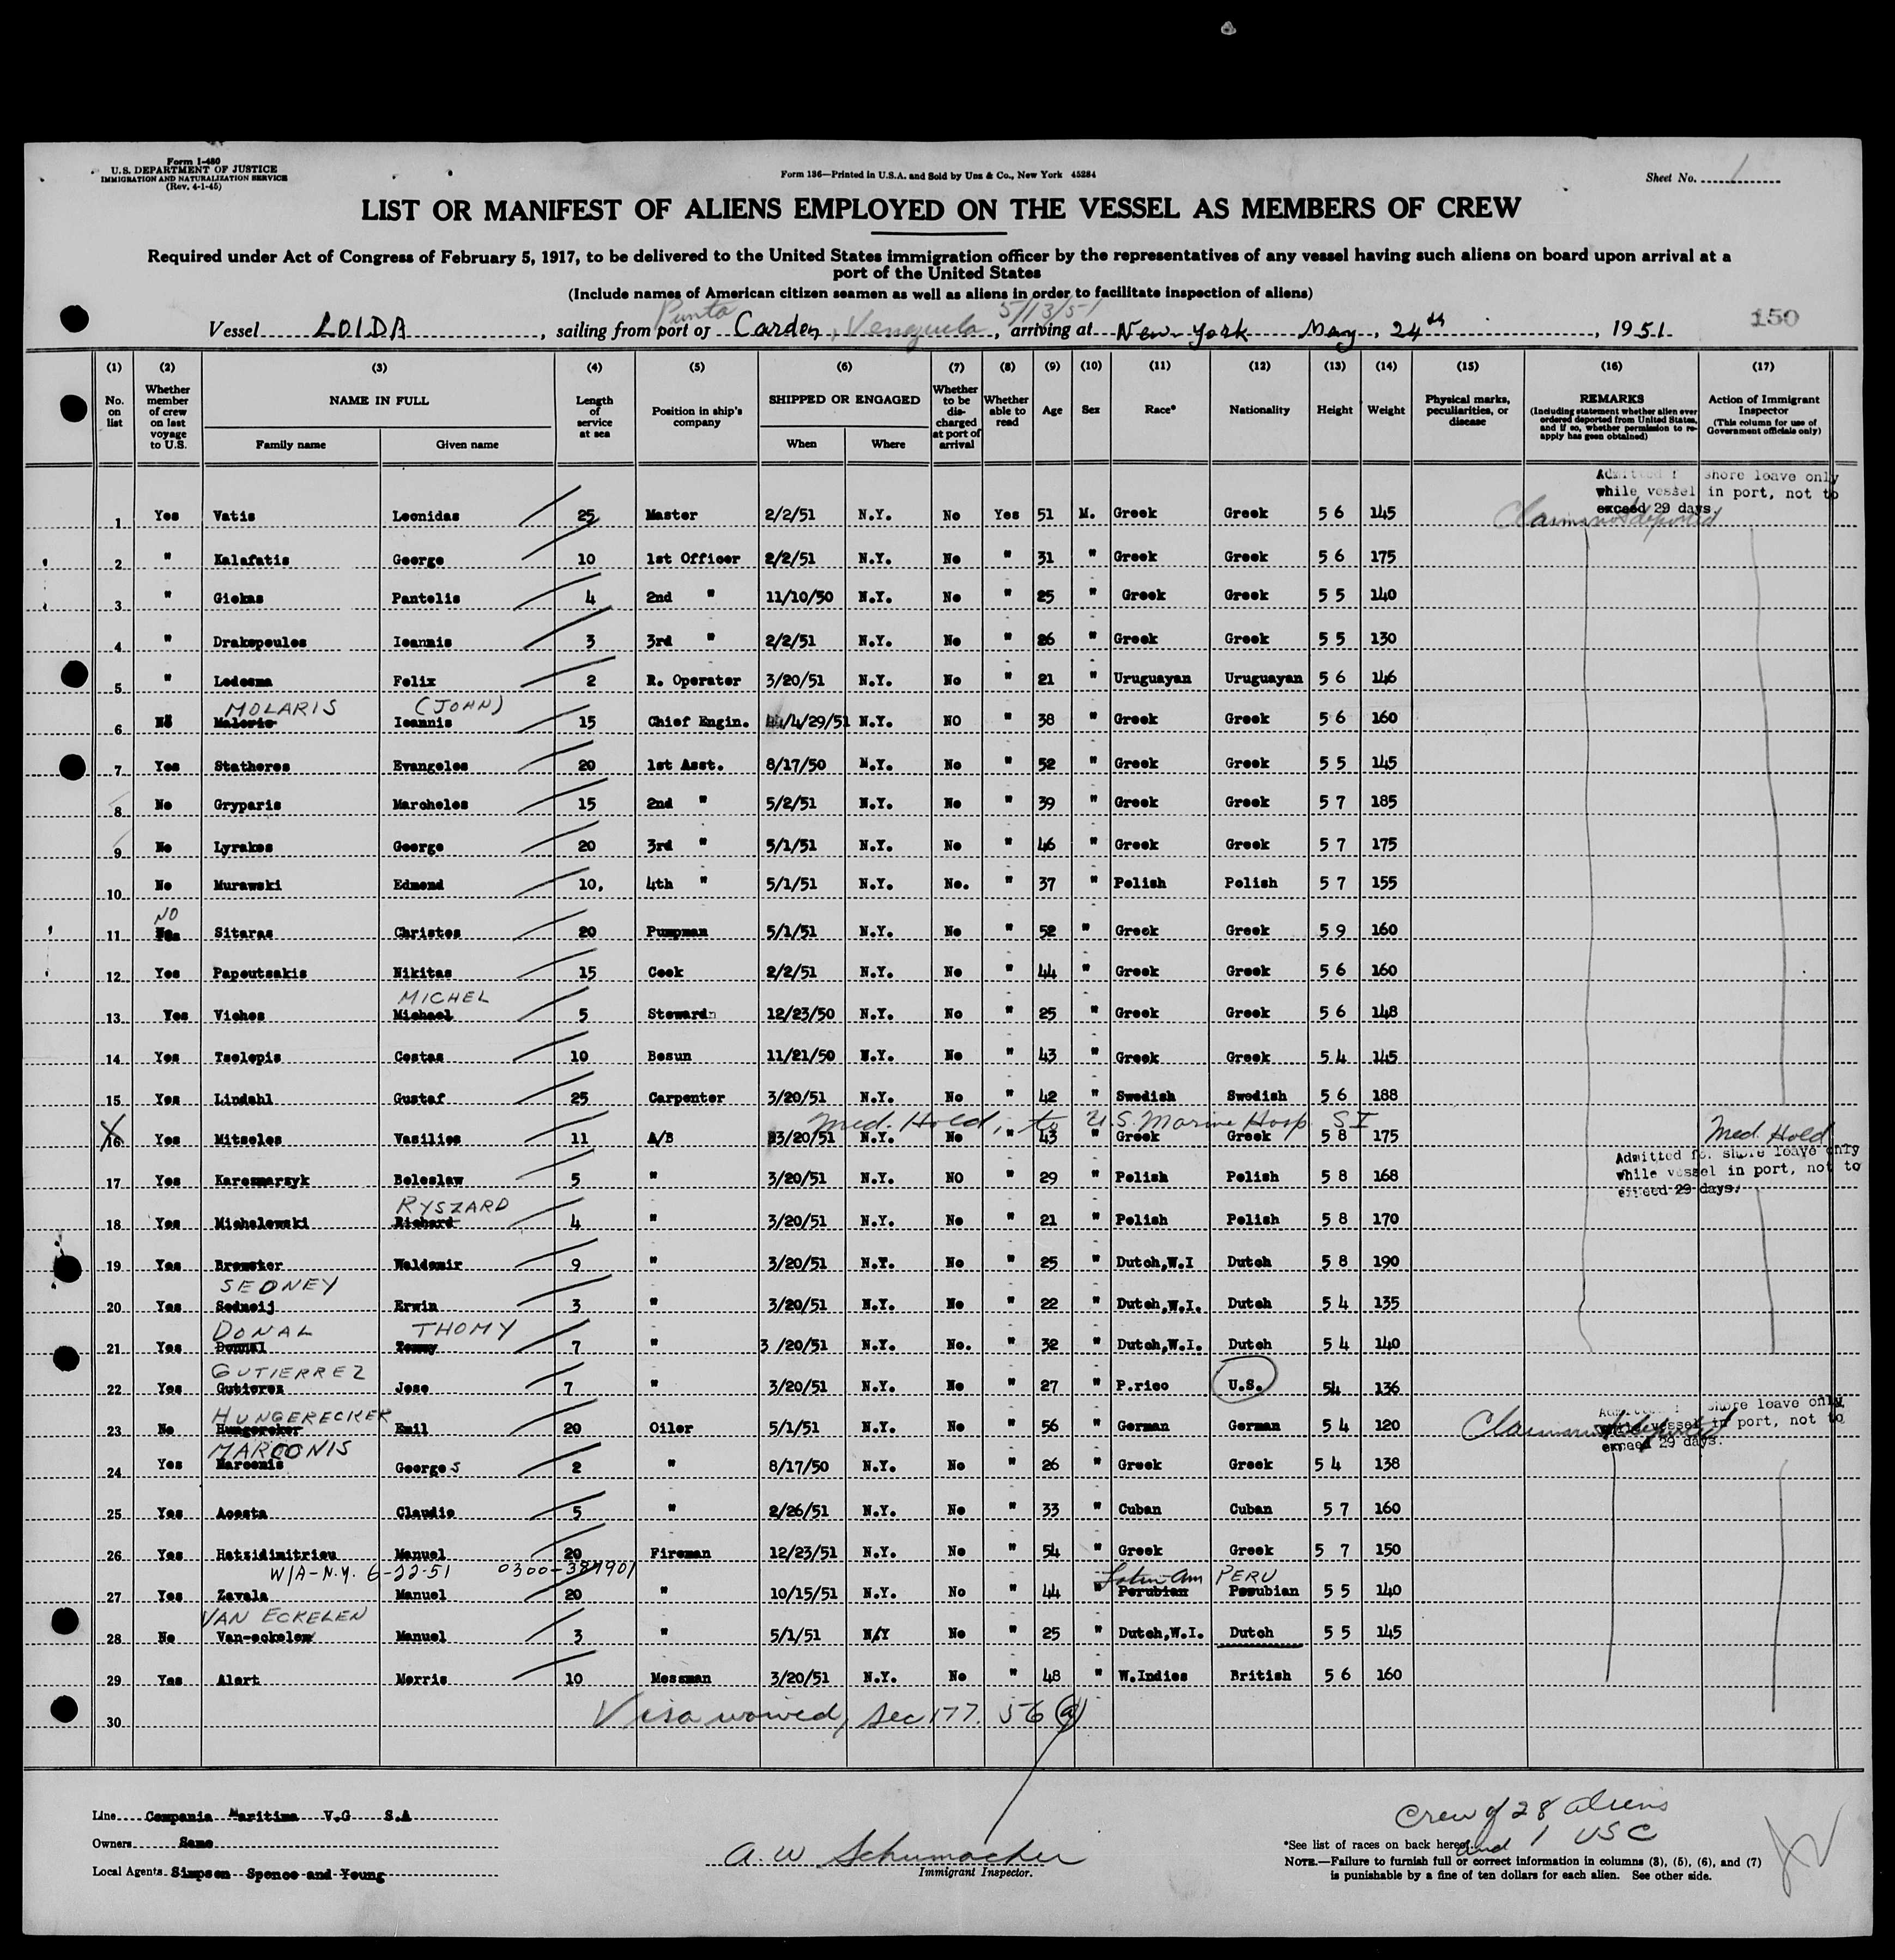 Form I-480
U.S. DEPARTMENT OF JUSTICE
IMMIGRATION AND NATURALIZATION SERVICE
(Rev. 4-1-45)
Form 136—Printed in U.S.A. and Sold by Unz & Co., New York 45284
Sheet No. 1
LIST OR MANIFEST OF ALIENS EMPLOYED ON THE VESSEL AS MEMBERS OF CREW
Required under Act of Congress of February 5, 1917, to be delivered to the United States immigration officer by the representatives of any vessel having such aliens on board upon arrival at a
port of the United States
(Include names of American citizen seamen as well as aliens in order to facilitate inspection of aliens)
Punta 5/13/51
Vessel LOIDA, sailing from port of Carden, Venezuela, arriving at New York May, 24th, 1951 150
(1) (2) (3) (4) (5) (6) (7) (8) (9) (10) (11) (12) (13) (14) (15) (16) (17)
No. on list Whether member of crew on last voyage to U.S. NAME IN FULL Family name Given name Length of service at sea Position in ship's company SHIPPED OR ENGAGED When Where Whether to be discharged at port of arrival Whether able to read Age Sex Race* Nationality Height Weight Physical marks, peculiarities, or disease REMARKS (Including statement whether alien ever ordered deported from United States, and if so, whether permission to re-apply has been obtained) Action of Immigrant Inspector (This column for use of Government officials only)
Admitted shore leave only
while vessel in port, not to
exceed 29 days.
1 Yes Vatis Leonidas 25 Master 2/2/51 N.Y. No Yes 51 M. Greek Greek 5 6 145 Claims not deported
2 " Kalafatis George 10 1st Officer 2/2/51 N.Y. No " 31 " Greek Greek 5 6 175
3 " Giekas Pantelis 4 2nd " 11/10/50 N.Y. No " 25 " Greek Greek 5 5 140
4 " Drakopoulos Ioannis 3 3rd " 2/2/51 N.Y. No " 26 " Greek Greek 5 5 130
5 " Ledesma Felix 2 R. Operator 3/20/51 N.Y. No " 21 " Uruguayan Uruguayan 5 6 146
MOLARIS (JOHN)
6 No Maloris Ioannis 15 Chief Engin. 4/29/51 N.Y. NO " 38 " Greek Greek 5 6 160
7 Yes Statheros Evangelos 20 1st Asst. 8/17/50 N.Y. No " 52 " Greek Greek 5 5 145
8 No Gryparis Marcholos 15 2nd " 5/2/51 N.Y. No " 39 " Greek Greek 5 7 185
9 No Lyrakos George 20 3rd " 5/1/51 N.Y. No " 46 " Greek Greek 5 7 175
10 No Murawski Edmond 10, 4th " 5/1/51 N.Y. No. " 37 " Polish Polish 5 7 155
NO
11 Sitaras Christos 20 Pumpman 5/1/51 N.Y. No " 52 " Greek Greek 5 9 160
12 Yes Papoutsakis Nikitas 15 Cook 2/2/51 N.Y. No " 44 " Greek Greek 5 6 160
MICHEL
13 Yes Vichos Michael 5 Steward 12/23/50 N.Y. No " 25 " Greek Greek 5 6 148
14 Yes Tselepis Costas 10 Bosun 11/21/50 N.Y. No " 43 " Greek Greek 5 4 145
15 Yes Lindahl Gustaf 25 Carpenter 3/20/51 N.Y. No " 42 " Swedish Swedish 5 6 188
Med. Hold, to U.S. Marine Hosp. SI Med. Hold
16 Yes Mitselos Vasilios 11 A/B 3/20/51 N.Y. No " 43 " Greek Greek 5 8 175
Admitted for shore leave only
while vessel in port, not to
exceed 29 days.
17 Yes Karozmarzyk Boleslaw 5 " 3/20/51 N.Y. NO " 29 " Polish Polish 5 8 168
RYSZARD
18 Yes Michalewski Richard 4 " 3/20/51 N.Y. No " 21 " Polish Polish 5 8 170
19 Yes Brewster Waldemir 9 " 3/20/51 N.Y. No " 25 " Dutch,W.I Dutch 5 8 190
SEDNEY
20 Yes Sedneij Erwin 3 " 3/20/51 N.Y. No " 22 " Dutch,W.I. Dutch 5 4 135
DONAL THOMY
21 Yes Donnal Tommy 7 " 3 /20/51 N.Y. No. " 32 " Dutch,W.I. Dutch 5 4 140
GUTIERREZ
22 Yes Gutierez Jose 7 " 3/20/51 N.Y. No " 27 " P.rico U.S. 54 136
HUNGERECKER
shore leave only
while vessel in port, not to
exceed 29 days.
23 No Hungereker Emil 20 Oiler 5/1/51 N.Y. No " 56 " German German 5 4 120 Claims not deported
MARCONIS
24 Yes Marconis Georges 2 " 8/17/50 N.Y. No " 26 " Greek Greek 5 4 138
25 Yes Acosta Claudio 5 " 2/26/51 N.Y. No " 33 " Cuban Cuban 5 7 160
26 Yes Hatzidimitriou Manuel 20 Fireman 12/23/51 N.Y. No " 54 " Greek Greek 5 7 150
W/A-N.Y. 6-22-51 0300-387901 Latin-Am PERU
27 Yes Zavala Manuel 20 " 10/15/51 N.Y. No " 44 " Perubian Perubian 5 5 140
VAN ECKELEN
28 No Van-eckelen Manuel 3 " 5/1/51 N/Y No " 25 " Dutch,W.I. Dutch 5 5 145
29 Yes Alert Morris 10 Messman 3/20/51 N.Y. No " 48 " W.Indies British 5 6 160
30 Visa waived, Sec 177. 56 (a)
Line Compania Maritima V.G S.A
Owners Same
Local Agents Simpson Spence and Young
A. W Schumacher
Immigrant Inspector.
Crew of 28 aliens
and 1 USC
*See list of races on back hereof.
NOTE.—Failure to furnish full or correct information in columns (3), (5), (6), and (7)
is punishable by a fine of ten dollars for each alien. See other side.